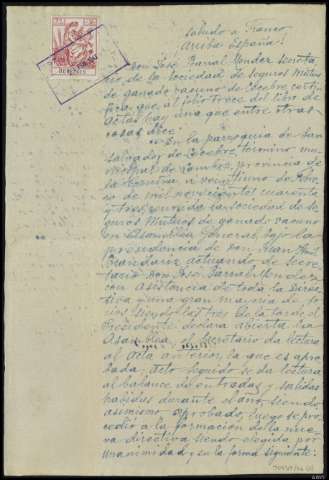 saludo a Franco
arriba España!
Don José Barral Mendez secreta
rio de la sociedad de seguros mutuos
de ganado vacuno de Cecebre, certi
fica: que al folio trece del libro de
Actas hay una que entre otras
cosas dice:
"En la parroquia de San
Salvador de Cecebre, término mu
nicipal de Cambre, provincia de
La Coruña a veintiuno de
de mil novecientos cuarenta
y tres, reunida la Sociedad de se
guros Mutuos de ganado vacuno
en Asamblea General, bajo la
presidencia de Don Juan
actuando de secre
tario Don José Barral Mendez
con asistencia de toda la Direc
tiva y una gran mayoria de so
cios. Siendo las tres de la tarde el
Presidente declara abierta la
Asamblea, el secretario da lectura
al acta anterior, la que es apro
bada, acto seguido se da lectura
al balance de entradas y salidas
habidas durante el año, siendo
asimismo aprobado, luego se pro
cedió a la formación de la nue
va directiva siendo elegida por
unanimidad y en la forma siguiente: